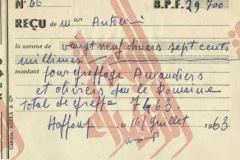 N° 66 B.P.F. 29,700
REÇU de Mar
la somme de vingt neuf sept cents
millimes
montant pour greffage Amandiers
et oliviers sur le Domaine
total de greffes 7463.
Haffouz, le 16 Juillet 1963